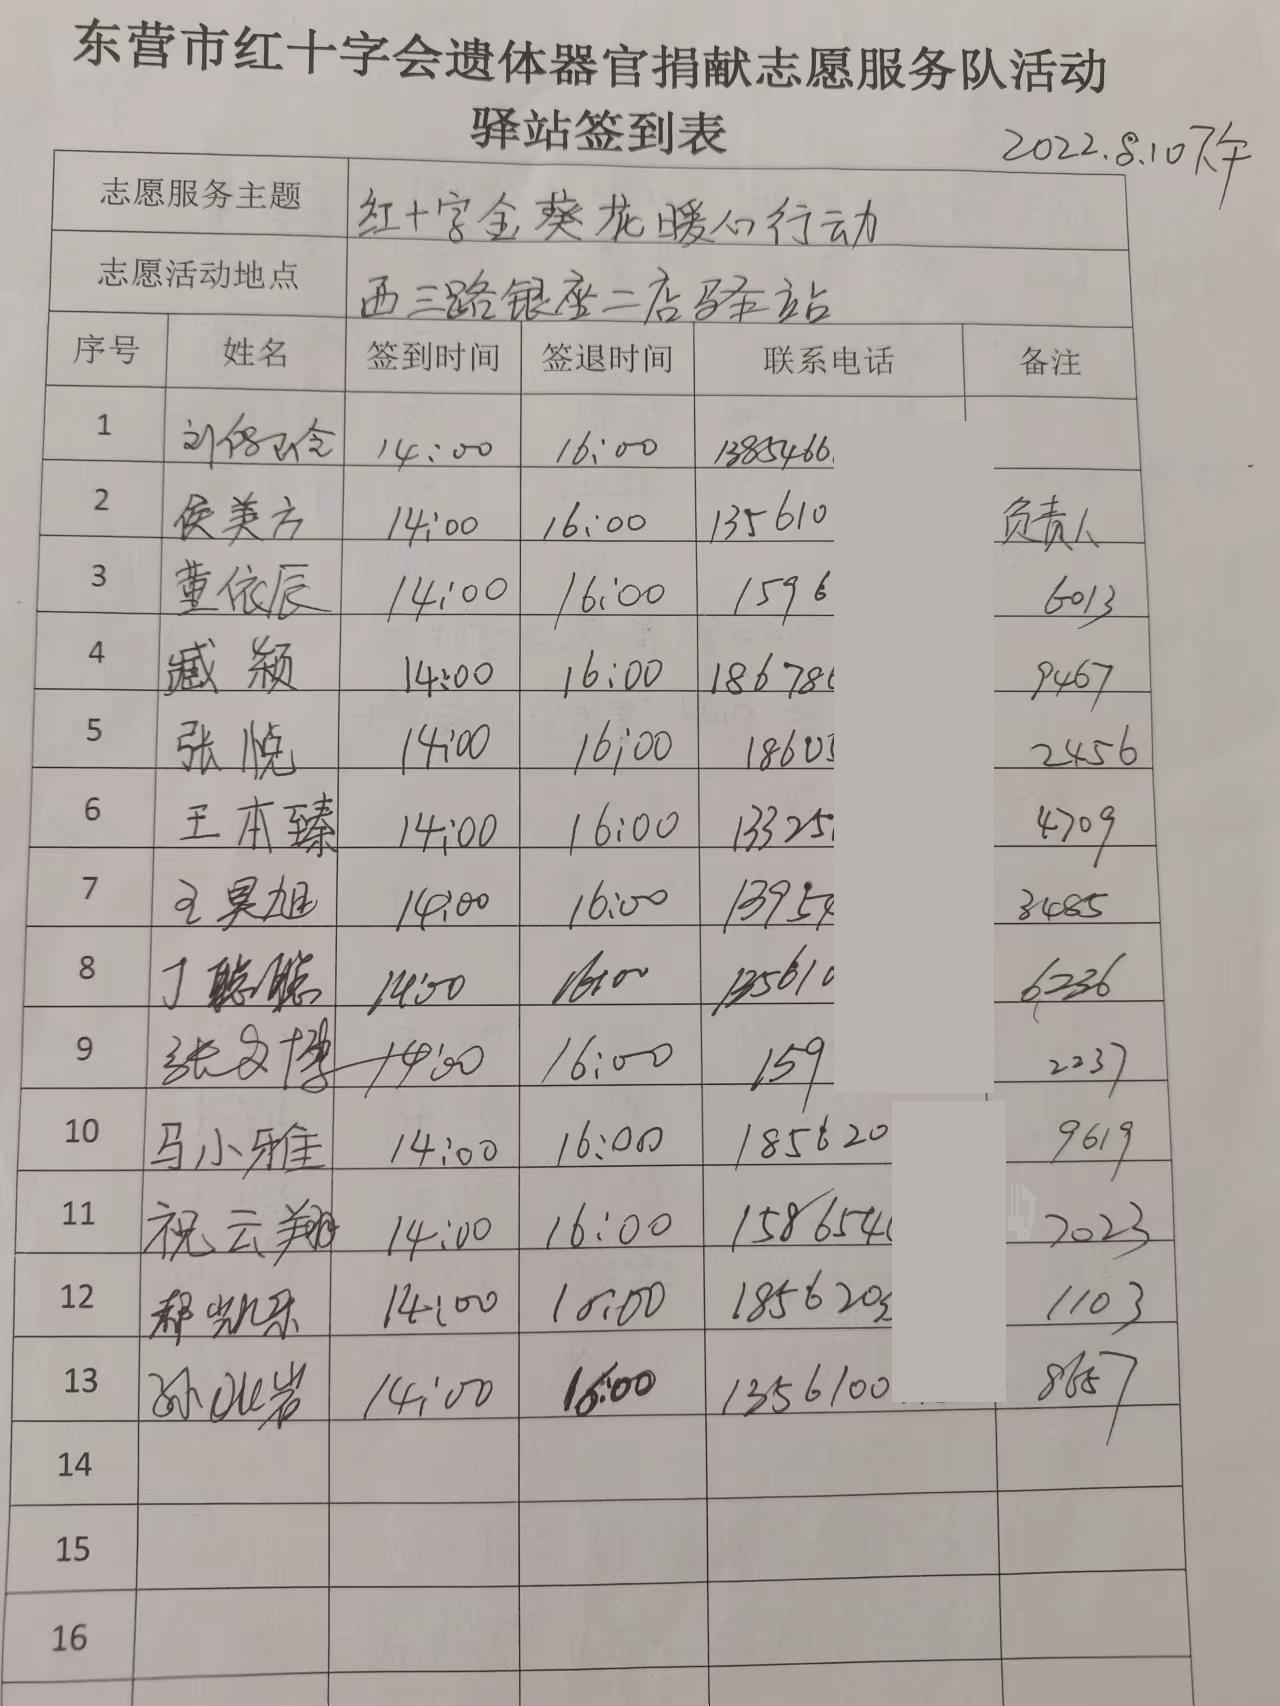 东营市红十字会遗体器官捐献志愿服务队活动
驿站签到表
2022.8.10下午
志愿服务主题 红十字金葵花暖心行动
志愿活动地点 西三路银座二店驿站
序号 姓名 签到时间 签退时间 联系电话 备注
1 14:00 16:00 1385466
2 侯美方 14:00 16:00 135610 负责人
3 董依辰 14:00 16:00 1596 6013
4 臧颖 14:00 16:00 186786 9467
5 张悦 14:00 16:00 18603 2456
6 王本臻 14:00 16:00 13325 4709
7 王昊旭 14:00 16:00 13954 3485
8 丁聪聪 14:00 16:00 135610 6236
9 张文博 14:00 16:00 159 2237
10 马小雅 14:00 16:00 185620 9619
11 祝云翔 14:00 16:00 1586546 7023
12 郝凯乐 14:00 16:00 1856203 1103
13 14:00 16:00 1356100 8657
14
15
16